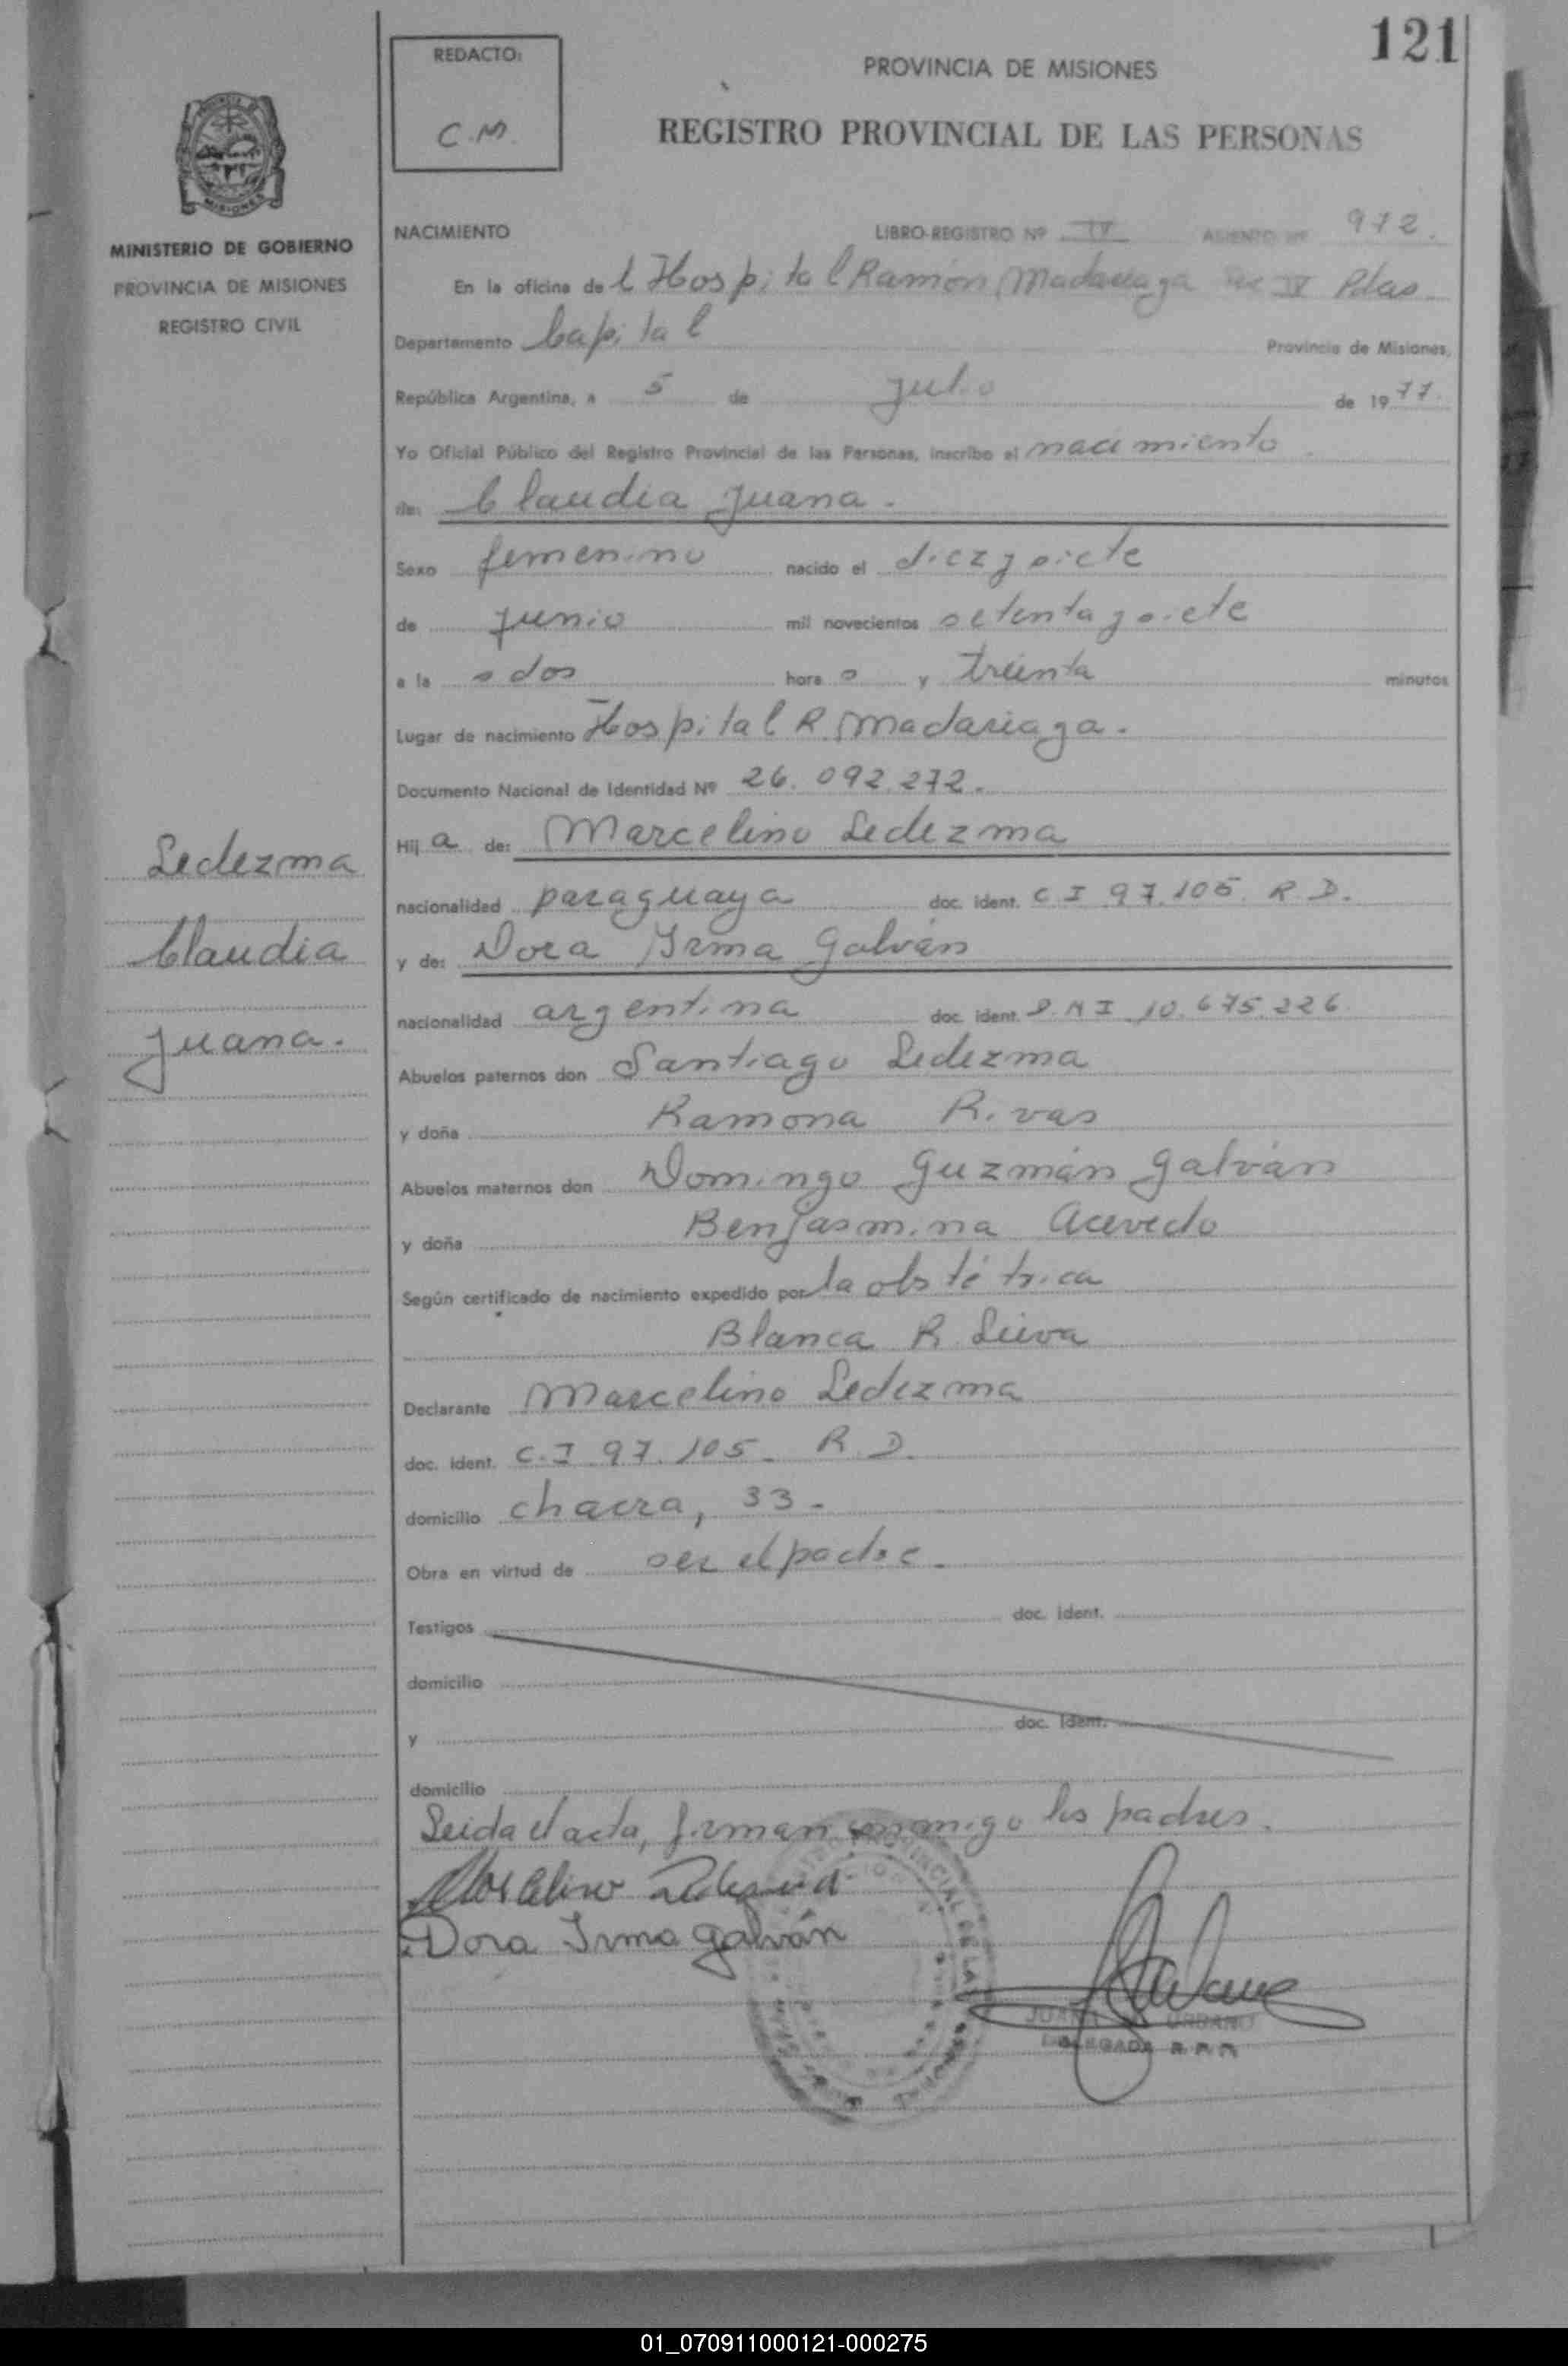 121
REDACTO:
C.M.
PROVINCIA DE MISIONES
REGISTRO PROVINCIAL DE LAS PERSONAS
MISIONES
MINISTERIO DE GOBIERNO
PROVINCIA DE MISIONES
REGISTRO CIVIL
NACIMIENTO LIBRO-REGISTRO Nº IV ASIENTO Nº 972.
En la oficina del Hospital Ramón Madariaga IV Pdas.
Departamento Capital Provincia de Misiones,
República Argentina, a 5 de Julio de 1977.
Yo Oficial Público del Registro Provincial de las Personas, inscribo el nacimiento
de: Claudia Juana.
Sexo femenino nacido el diez y siete
de Junio mil novecientos setenta y siete
a la s dos hora s y treinta minutos
Lugar de nacimiento Hospital R. Madariaga.
Documento Nacional de Identidad Nº 26.092.272.
Hij a de: Marcelino Ledezma
nacionalidad paraguaya doc. ident. C I 97.105 R.D.
y de: Dora Irma Galván
nacionalidad argentina doc. ident. D.N I 10.675.226.
Abuelos paternos don Santiago Ledezma
y doña Ramona Rivas
Abuelos maternos don Domingo Guzmán Galván
y doña Benjasmina Acevedo
Según certificado de nacimiento expedido por la obstétrica
Blanca R. Leiva
Declarante Marcelino Ledezma
doc. ident. C.I 97.105 R.D.
domicilio chacra, 33.
Obra en virtud de ser el padre.
Testigos doc. ident.
domicilio
y doc. ident.
domicilio
Leida el acta, firman conmigo los padres.
Marcelino Ledezma
Dora Irma Galván
JUANA URBANO
DELEGADA R.P.P.
Ledezma
Claudia
Juana.
01_070911000121-000275